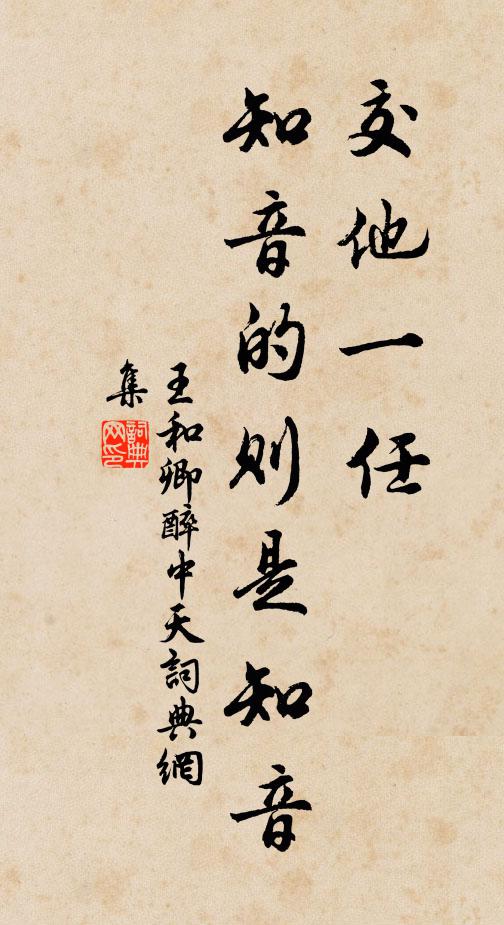 交他一任
知音的則是知音
王和卿醉中天詞典網
集
詞典
网印